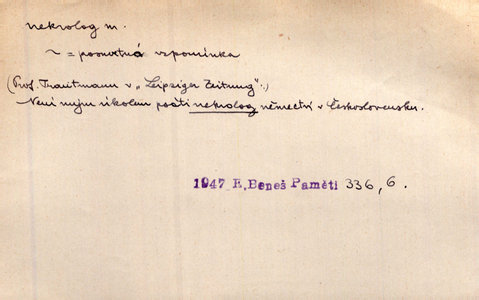 nekrolog m.
~ = posmrtná vzpomínka
(Prof. Trautmann v „Leipziger Zeitung":)
Není mým úkolem psáti nekrolog němectví v Československu.
1947 E. Beneš Paměti 336, 6.